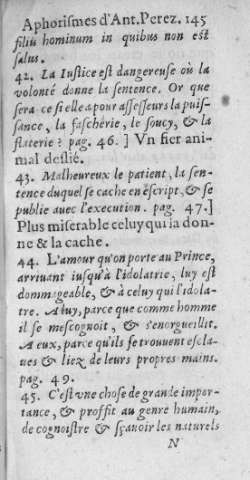 Aphorismes d'Ant. Perez. 145
filiis hominum in quibus non est
salus.
42. La Iustice est dangereuse où la
volonté donne la sentence. Or que
sera ce si elle a pour assesseurs la puis-
sance, la fascherie, le soucy, & la
flaterie? pag. 46. ] Vn fier ani-
mal deslié.
43. Malheureux le patient, la sen-
tence duquel se cache en escript, & se
publie auec l'execution. pag. 47. ]
Plus miserable celuy qui la don-
ne & la cache.
44. L'amour qu'on porte au Prince,
arriuant iusqu'à l'idolatrie, luy est
dommageable, & à celuy qui l'idola-
tre. A luy, parce que comme homme
il se mescognoit, & s'enorgueillit.
A eux, parce qu'ils se trouuent escla-
ues & liez de leurs propres mains.
pag. 49.
45. C'est vne chose de grande impor-
tance, & proffit au genre humain,
de cognoistre & sçauoir les naturels
N